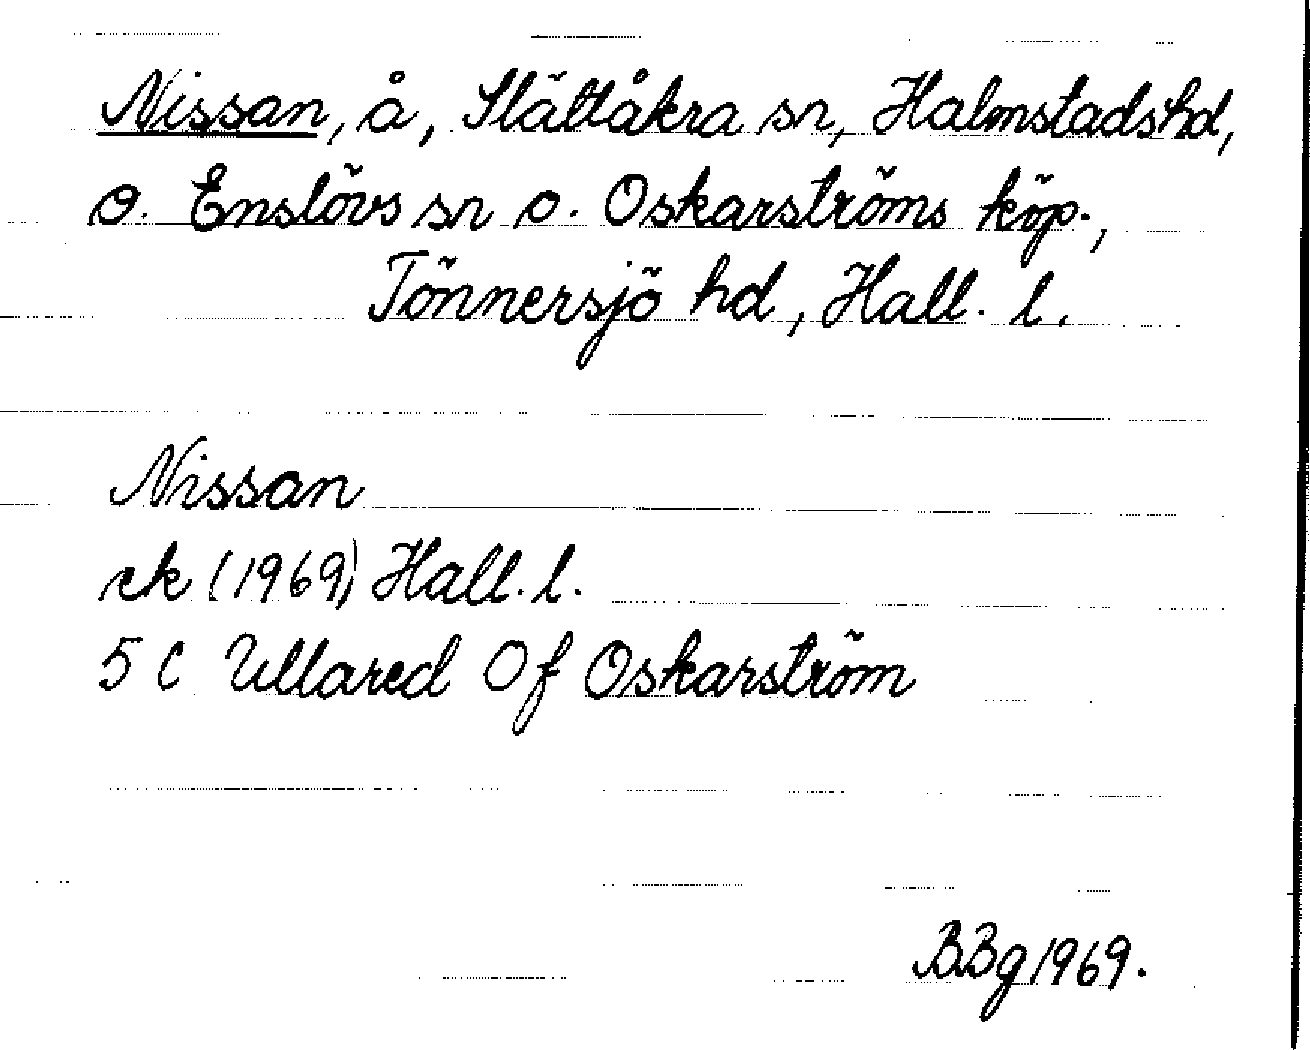 Nissan, å, Slättåkra sn, Halmstads hd,
o. Enslövs sn o. Oskarströms köp.,
Tönnersjö hd, Hall. l.
Nissan
rk (1969) Hall. l.
5 C Ullared Of Oskarström
BBg 1969.